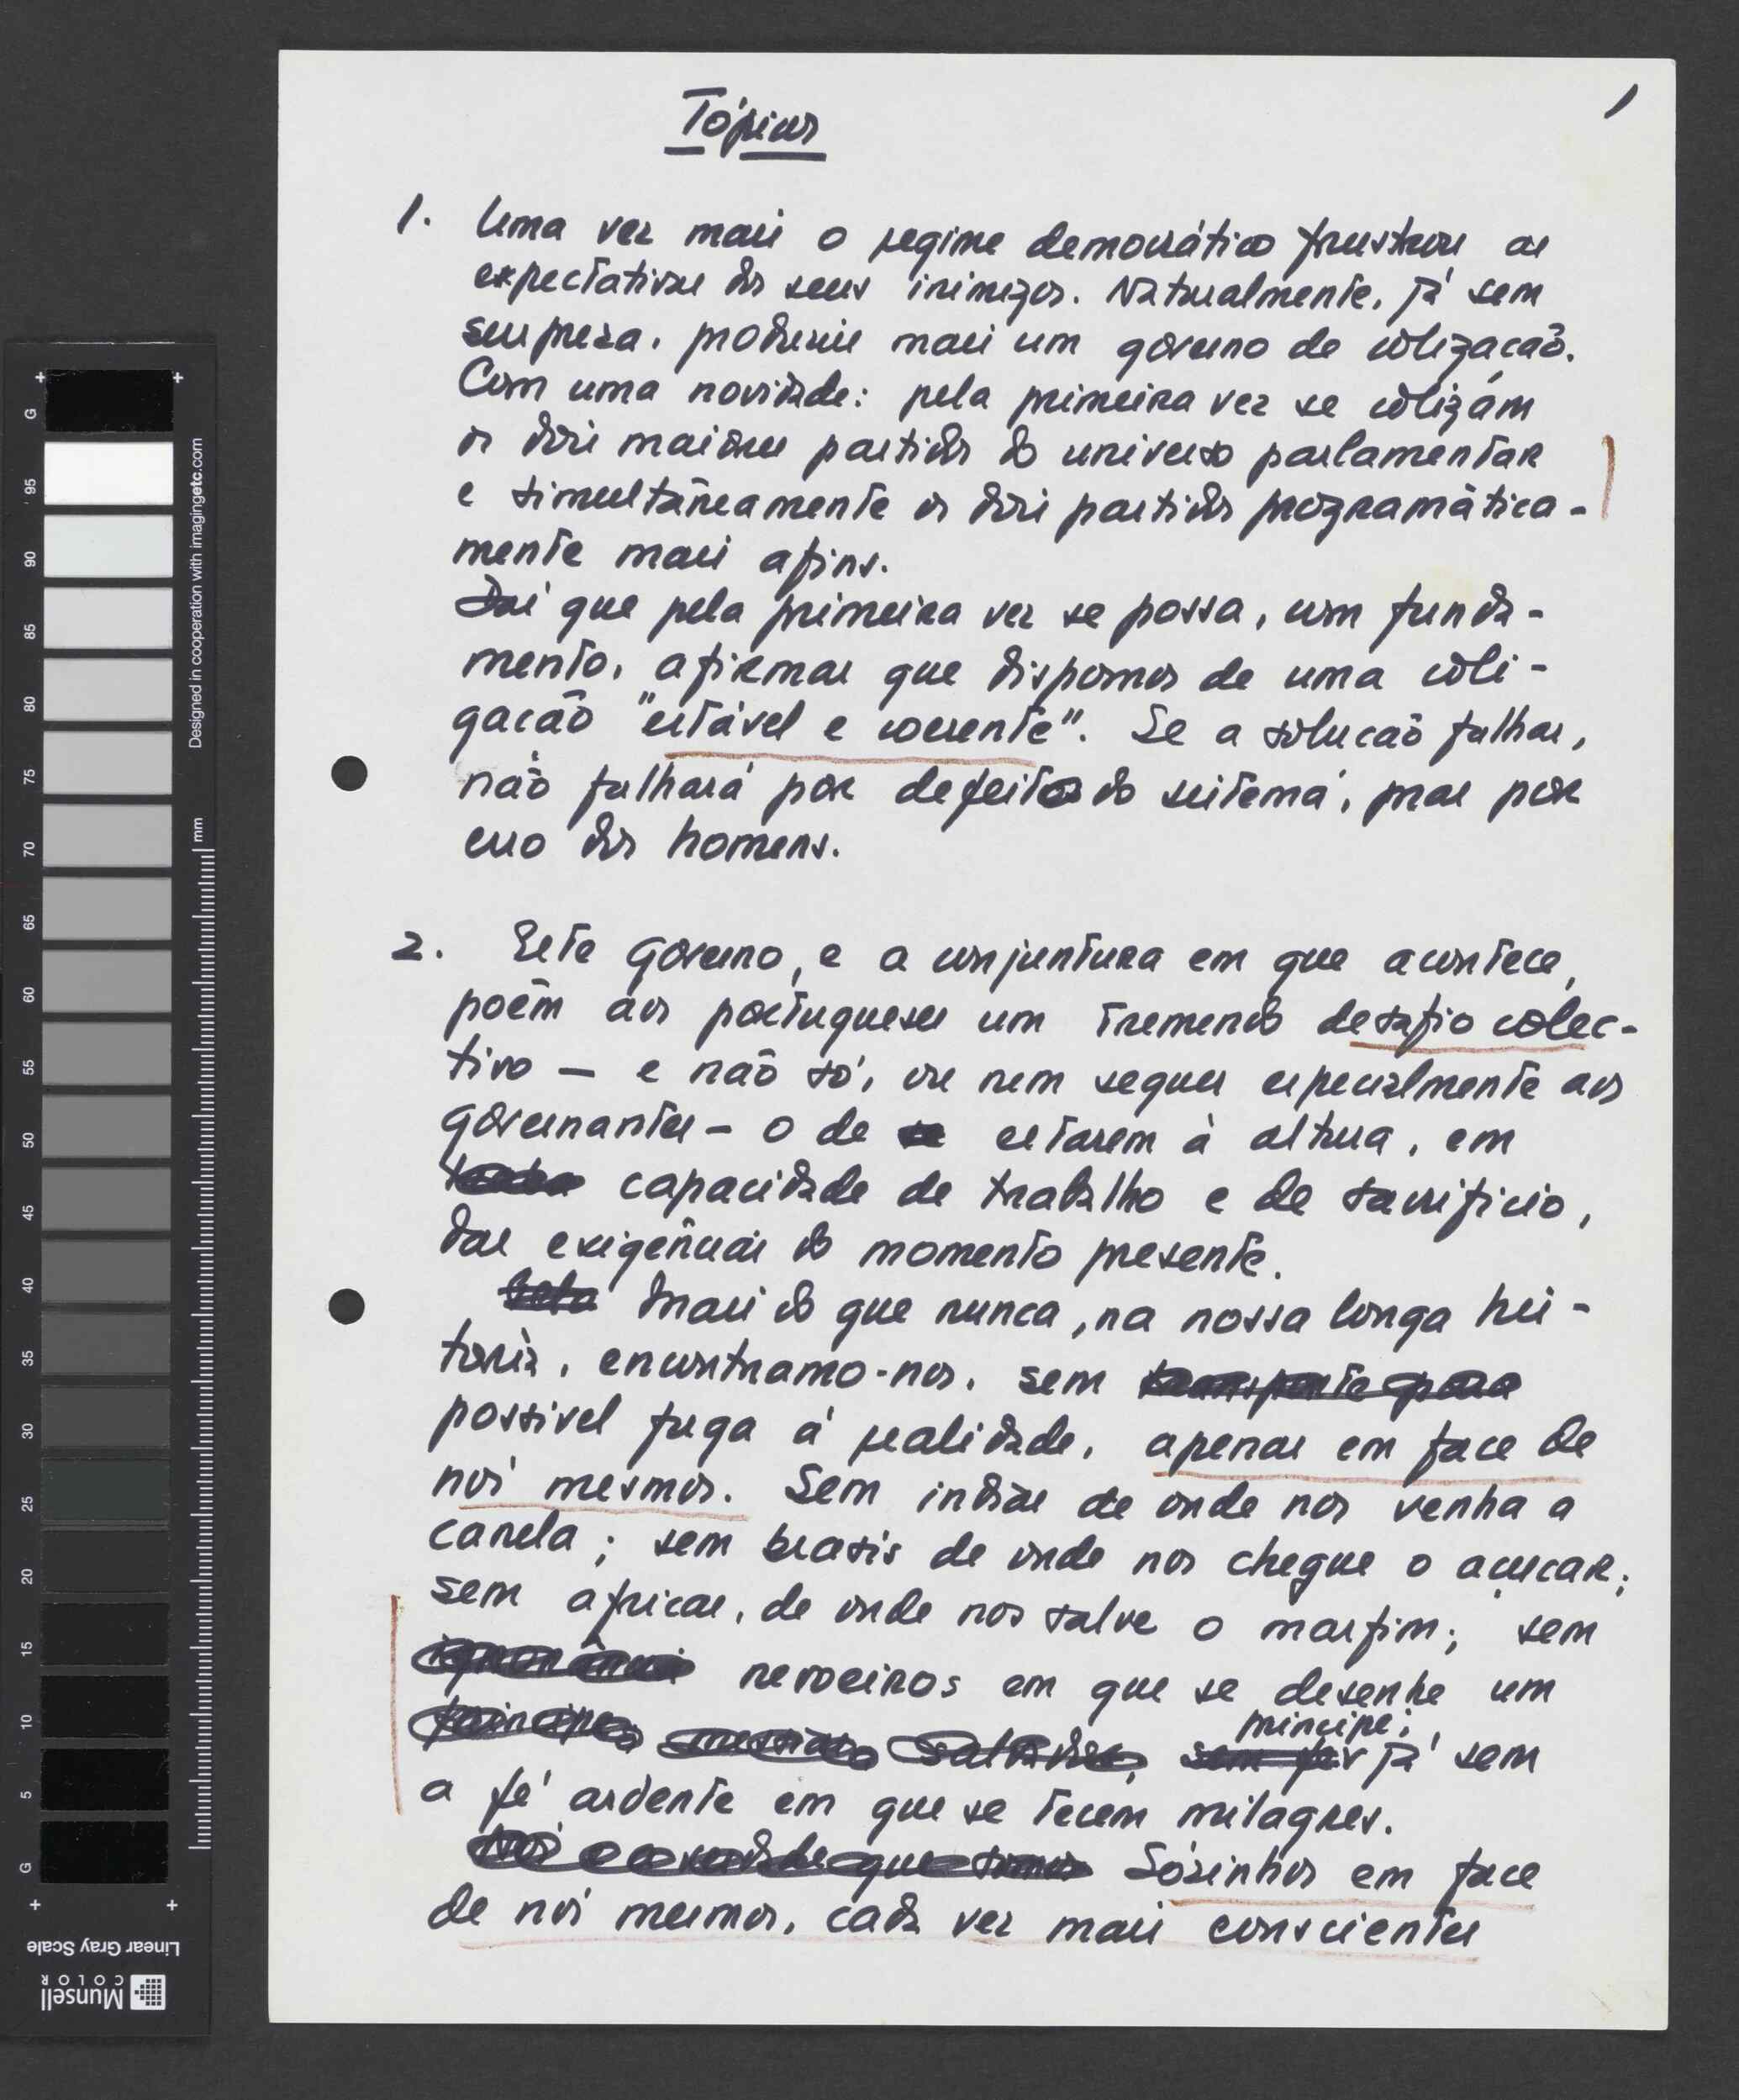 Tópicos
1
1. Uma vez mais o regime democrático frustrou as
expectativas dos seus inimigos. Naturalmente, já sem
surpreza, produziu mais um governo de coligação.
Com uma novidade: pela primeira vez se coligam
os dois maiores partidos do universo parlamentar
e simultâneamente os dois partidos programática-
mente mais afins.
Daí que pela primeira vez se possa, com funda-
mento, afirmar que dispomos de uma coli-
gação "estável e coerente". Se a solução falhar,
não falhará por defeitos do sistema, mas por
erro dos homens.
2. Este governo, e a conjuntura em que acontece,
poêm aos portugueses um tremendo desafio colec-
tivo — e não só, ou nem sequer especialmente aos
governantes — o de se estarem à altura, em
capacidade de trabalho e de sacrifício,
das exigências do momento presente.
Mais do que nunca, na nossa longa his-
tória, encontramo-nos, sem transporte para
possivel fuga à realidade, apenas em face de
nós mesmos. Sem indias de onde nos venha a
canela; sem brasis de onde nos chegue o açucar;
sem africas, de onde nos salve o marfim; sem
nevoeiros em que se desenhe um
principe;
já sem
a fé ardente em que se tecem milagres.
Sósinhos em face
de nós mesmos, cada vez mais conscientes
Designed in cooperation with imagingetc.com
mm
G 95 90 85 80 75 70 65 60 55 50 45 40 35 30 25 20 15 10 5 G
Linear Gray Scale
Munsell
COLOR